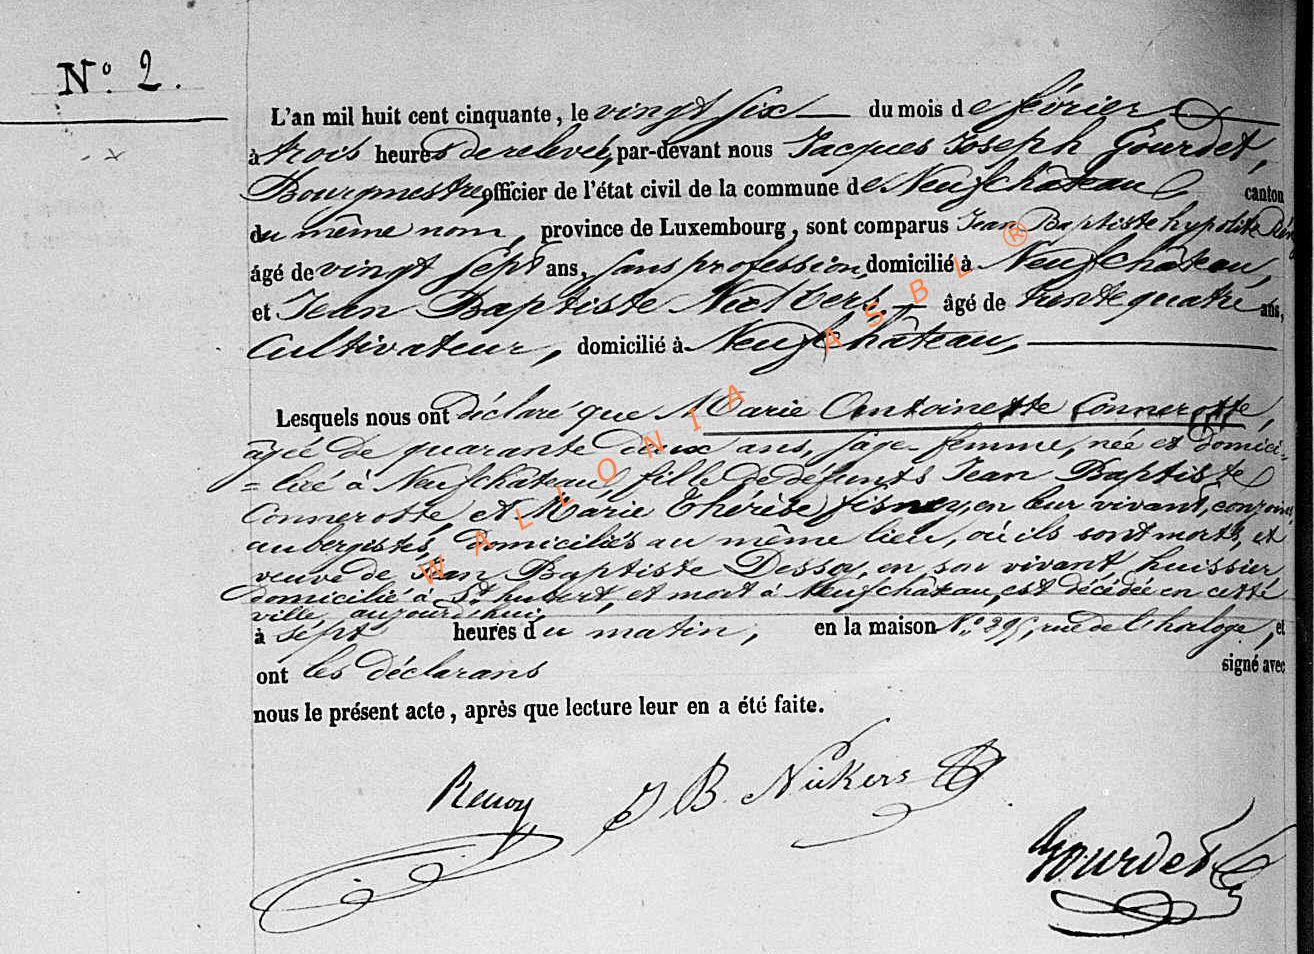 N.º 2.
L'an mil huit cent cinquante, le vingt six du mois de février
à trois heures de relevée, par-devant nous Jacques Joseph Gourdet,
Bourgmestre, officier de l'état civil de la commune de Neufchâteau canton
du même nom, province de Luxembourg, sont comparus Jean Baptiste hypolite
âgé de vingt sept ans, sans profession, domicilié à Neufchâteau,
et Jean Baptiste âgé de trente quatre ans,
Cultivateur, domicilié à Neufchâteau,
Lesquels nous ont déclaré que Marie Antoinette Connerotte,
agée de quarante deux ans, sage femme, née et domici-
=liée à Neufchâteau, fille de défunts Jean Baptiste
Connerotte, et Marie Thérèse en leur vivant, conjoins,
aubergistes, domiciliés au même lieu, où ils sont morts, et
veuve de Jean Baptiste Dessoy, en son vivant huissier
domicilié à St hubert, et mort à Neufchâteau, est décédée en cette
ville, aujourd'hui
à sept heures du matin, en la maison N.º 295, rue de l'horloge, et
ont les déclarans signé avec
nous le présent acte, après que lecture leur en a été faite.
J B. Nickers
Gourdet
WALLONIA ASBL ®